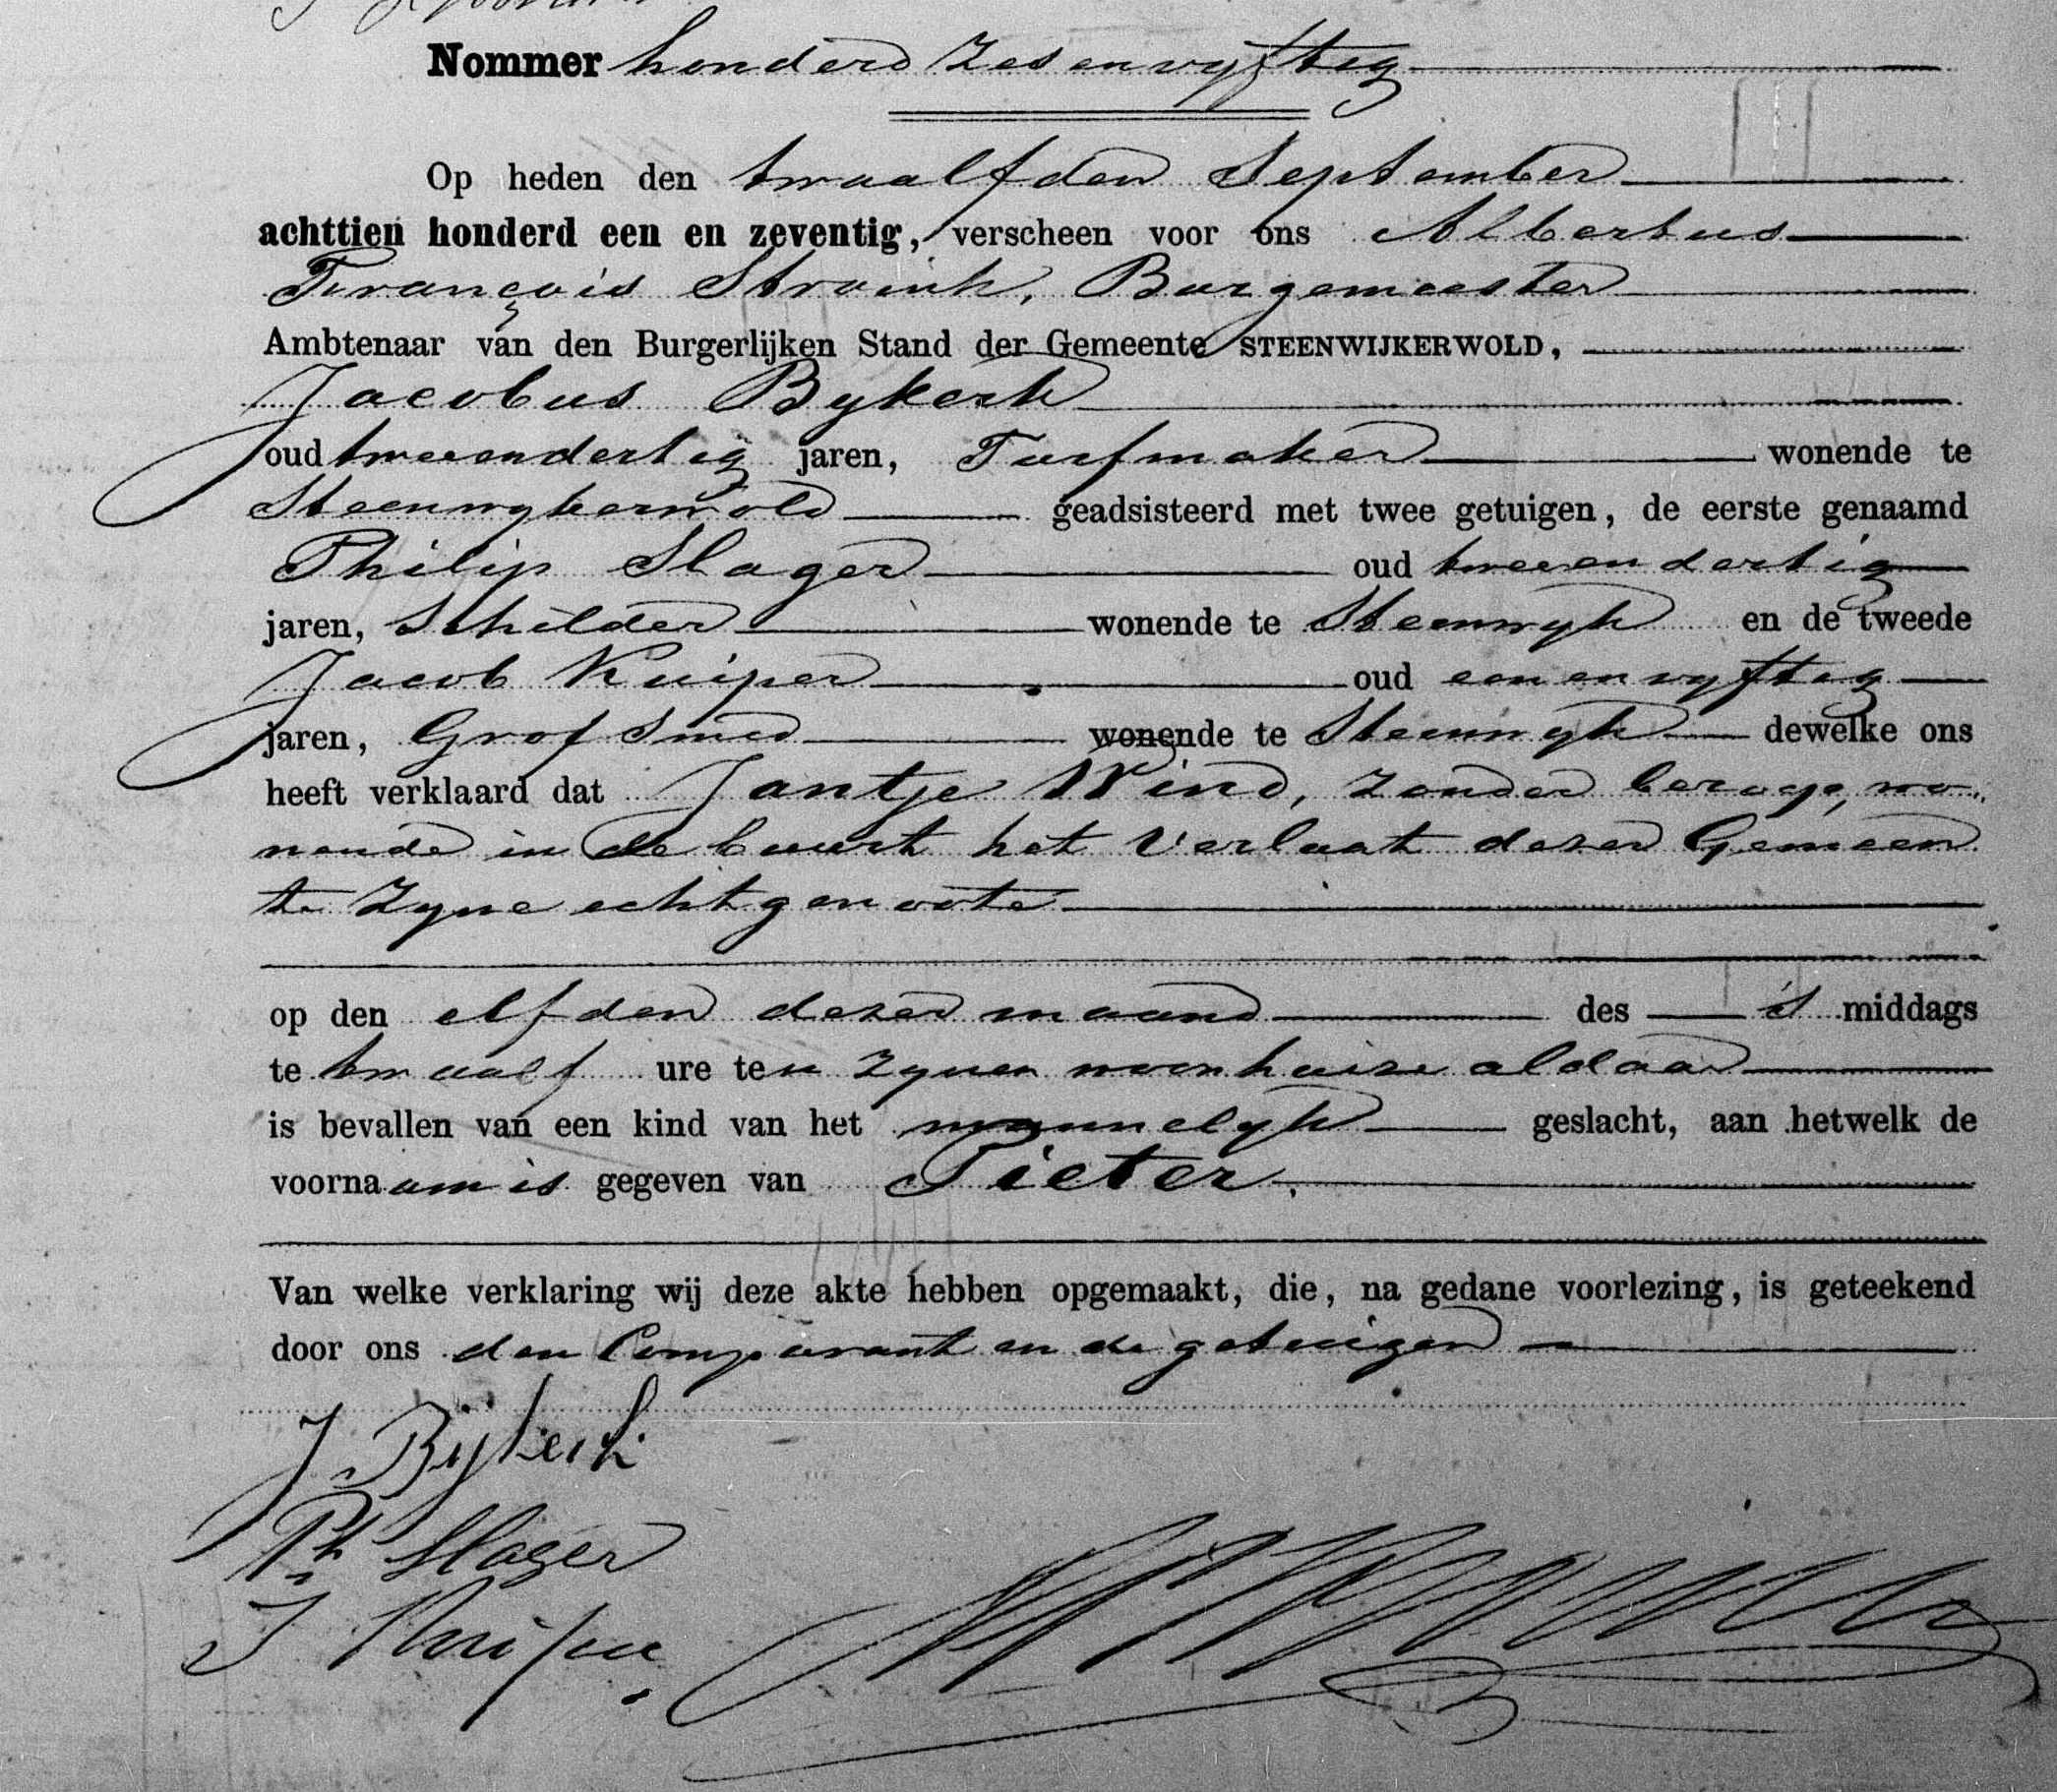 Nommer honderd zesenvyftig
Op heden den twaalfden September
achttien honderd een en zeventig, verscheen voor ons Albertus
François Stroink, Burgemeester
Ambtenaar van den Burgerlijken Stand der Gemeente STEENWIJKERWOLD,
Jacobus Bykerk
oud tweeendertig jaren, Turfmaker wonende te
Steenwykerwold geadsisteerd met twee getuigen, de eerste genaamd
Philip Slager oud tweeendertig
jaren, Schilder wonende te Steenwyk en de tweede
Jacob Kuiper oud eenenvyftig
jaren, Grofsmid wonende te Steenwyk dewelke ons
heeft verklaard dat Jantje Wind, zonder beroep, wo-
nende in de buurt het Verlaat dezer Gemeen
te zyne echtgenoote
op den elfden dezer maand des 's middags
te twaalf ure ten zynen woonhuize aldaar
is bevallen van een kind van het mannelyk geslacht, aan hetwelk de
voornaam is gegeven van Pieter.
Van welke verklaring wij deze akte hebben opgemaakt, die, na gedane voorlezing, is geteekend
door ons den Comparant en de getuigen
J Bijkerk
Ph Slager
J Kuiper